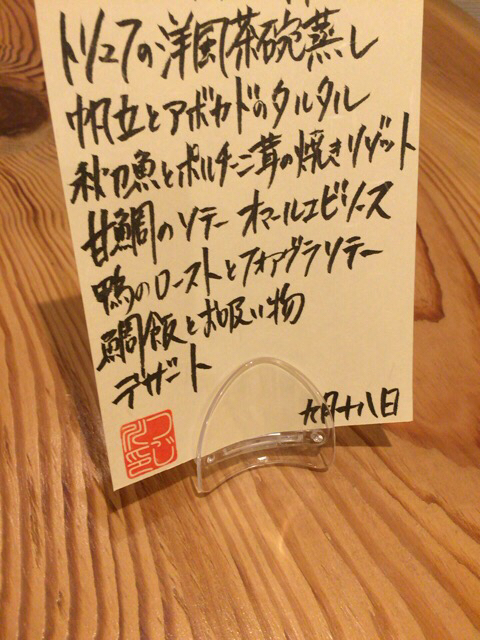 トリュフの洋風茶碗蒸し
帆立とアボカドのタルタル
秋刀魚とポルチーニ茸の焼きリゾット
甘鯛のソテー オマールエビソース
鴨のローストとフォアグラソテー
鯛飯とお吸い物
デザート
九月十八日